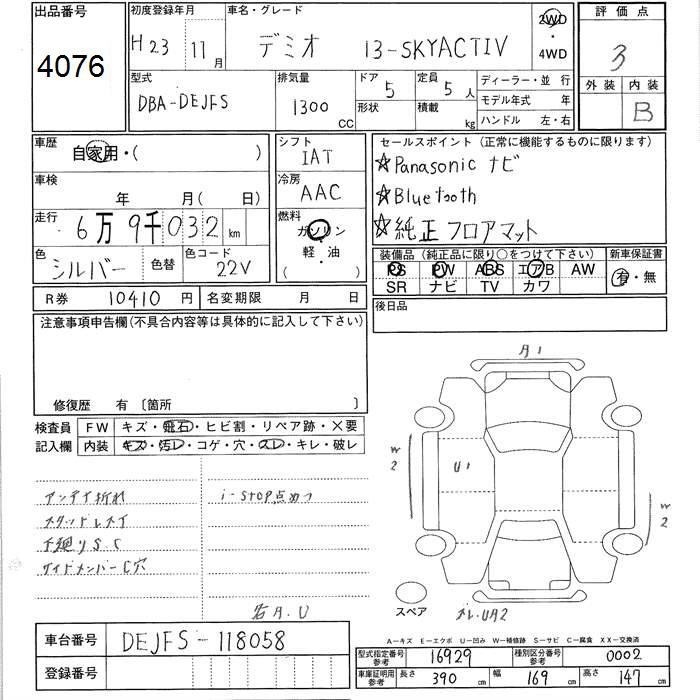 出品番号
4076
初度登録年月
H23 11月
車名・グレード
デミオ 13-SKYACTIV
2WD
・
4WD
評価点
3
外装 内装
B
型式
DBA-DEJFS
排気量
1300 CC
ドア 5
形状
定員 5人
積載 kg
ディーラー・並行
モデル年式 年
ハンドル 左・右
車歴
自家用・( )
車検
年 月( 日)
走行
6万9千032km
色
シルバー 色替
色コード
22V
シフト
IAT
冷房
AAC
燃料
ガソリン
軽・油
( )
セールスポイント (正常に機能するものに限ります)
☆Panasonic ナビ
☆Bluetooth
☆純正フロアマット
装備品 (純正品に限り○をつけて下さい)
PS PW ABS エアB AW
SR ナビ TV カワ
新車保証書
有・無
後日品
R券 10410円
名変期限 月 日
注意事項申告欄(不具合内容等は具体的に記入して下さい)
修復歴 有 [箇所 ]
検査員
記入欄
FW キズ・飛石・ヒビ割・リペア跡・×要
内装 キズ・汚レ・コゲ・穴・スレ・キレ・破レ
アンテナ折れ
スタッドレスタイ
下廻りS.C
サイドメンバーC穴
i-stop点めつ
右A.U
A1
W2
U1
W2
スペア
A-キズ E-エクボ U-凹み W-補修跡 S-サビ C-腐食 XX-交換済
車台番号 DEJFS-118058
登録番号
型式指定番号 参考 16929
種別区分番号 参考 0002
車庫証明用 参考 長さ 390cm 幅 169cm 高さ 147cm